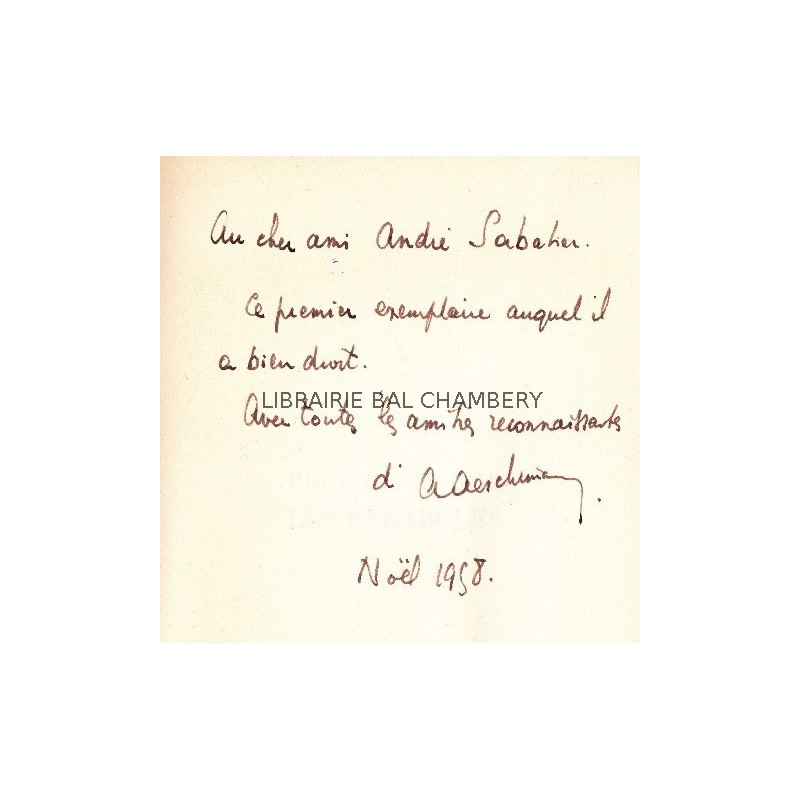 Au cher ami André Sabatier.
Ce premier exemplaire auquel il
a bien droit.
LIBRAIRIE BAL CHAMBERY
Avec toutes les amitiés reconnaissantes
d' A Aeschimann.
POUR
LES PARABOLES
Noël 1958.